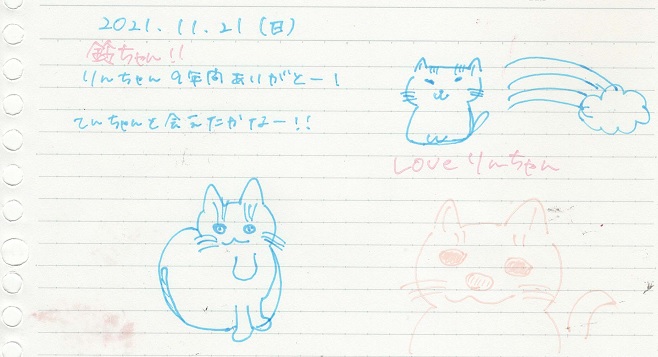 2021.11.21(日)
鈴ちゃん!!
りんちゃん9年間ありがとー!
てんちゃんと会えたかなー!!
Loveりんちゃん